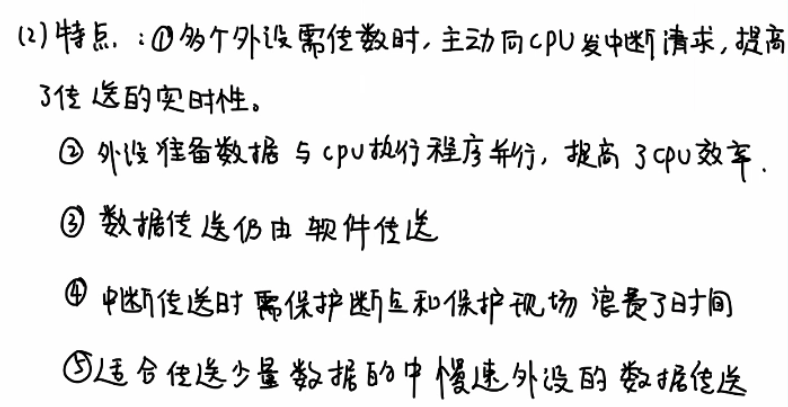 (2)特点.:①多个外设需传数时,主动向CPU发中断请求,提高
了传送的实时性。
② 外设准备数据与cpu执行程序并行,提高了cpu效率.
③ 数据传送仍由软件传送
④ 中断传送时需保护断点和保护现场 浪费了时间
⑤适合传送少量数据的中慢速外设的数据传送